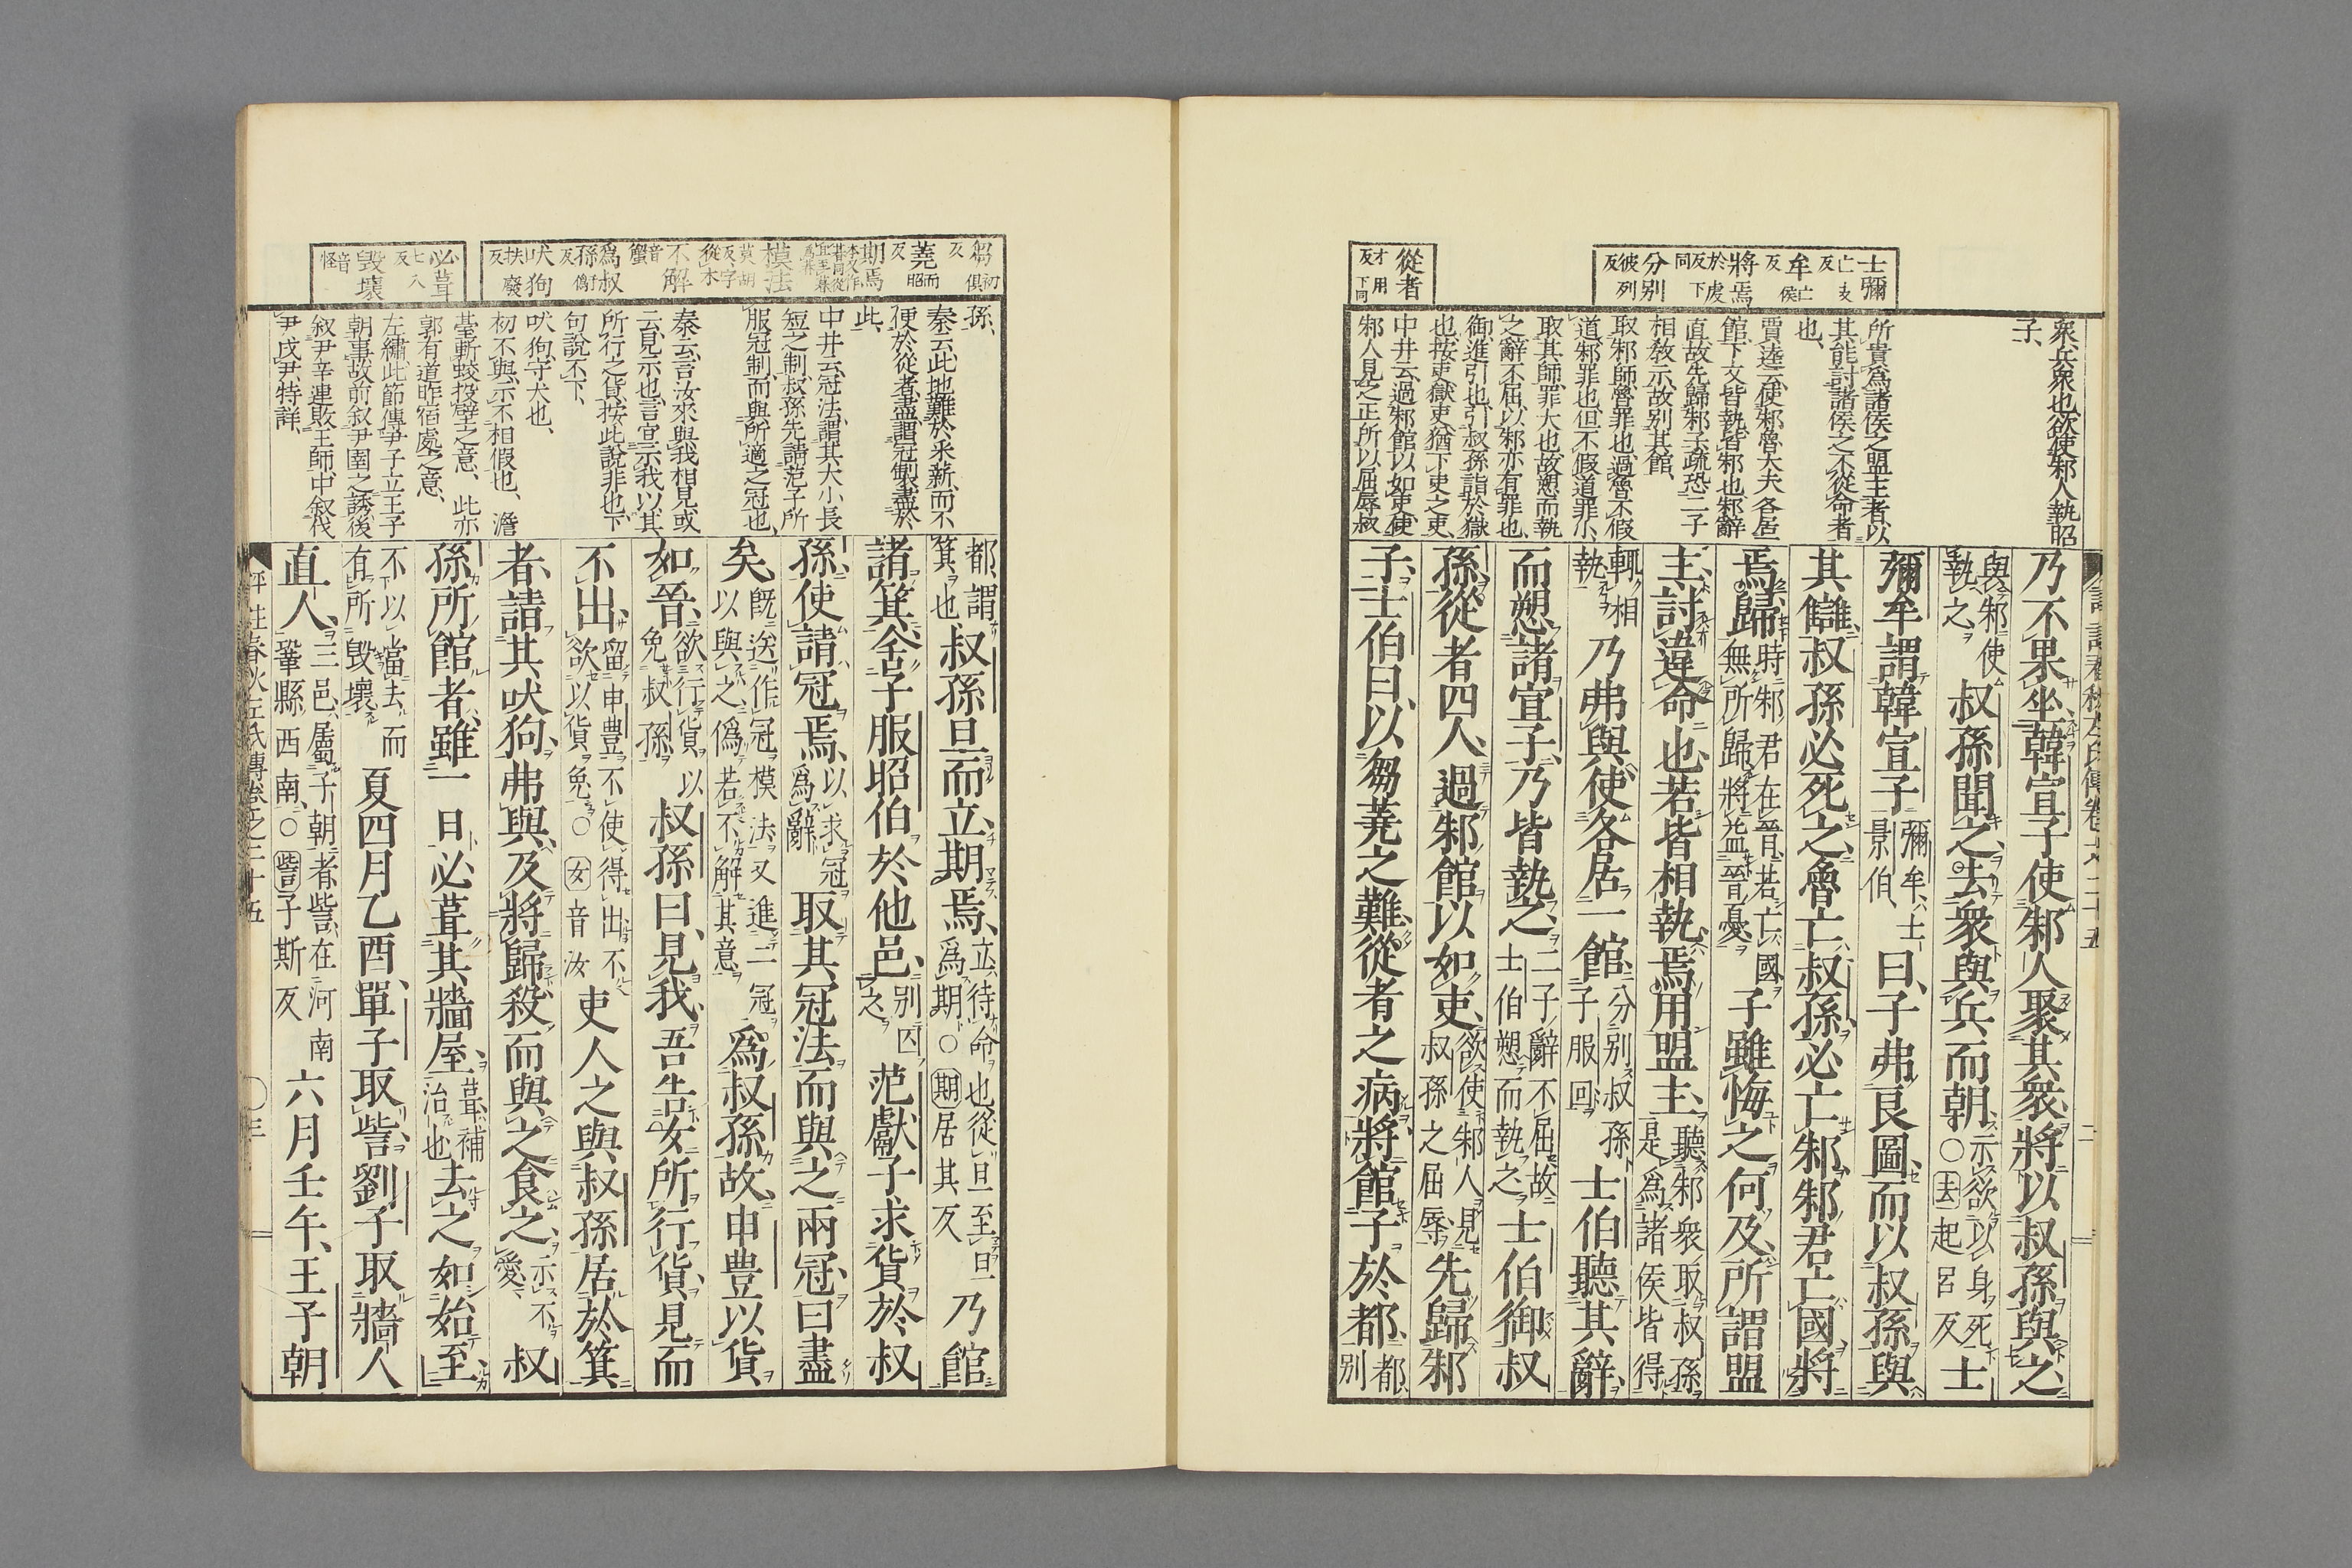 士彌
亡支反
牟
亡侯反
將焉
於虔反下同
分別
彼列反
從者
才用反下同
衆兵衆也欲使邾人執昭
子
所貴爲諸侯之盟主者以
其能討諸侯之不從命者
也
賈逵云使邾魯大夫各居一
館下文皆執皆邾也邾辭
直故先歸邾子疏恐二子
相敎示故別其館
取邾師魯罪也過魯不假
道邾罪也但不假道罪小
取其師罪大也故愬而執
之辭不屈以邾亦有罪也
御進引也引叔孫詣於獄
也按吏獄吏猶下吏之吏
中井云過邾館以如吏使
邾人見之正所以屈辱叔
乃不果坐韓宣子使邾人聚其衆將以叔孫與之
與邾使執之叔孫聞之去衆與兵而朝示欲以身死○去起呂反士
彌牟謂韓宣子彌牟士景伯曰子弗良圖而以叔孫與
其讎叔孫必死之魯亡叔孫必亡邾邾君亡國將
焉歸時邾君在晉若亡國無所歸將益晉憂子雖悔之何及所謂盟
主討違命也若皆相執焉用盟主聽邾衆取叔孫是爲諸侯皆得
輒相執乃弗與使各居一館分別叔孫子服回士伯聽其辭
而愬諸宣子乃皆執之二子辭不屈故士伯愬而執之士伯御叔
孫從者四人過邾館以如吏欲使邾人見叔孫之屈辱先歸邾
子士伯曰以芻蕘之難從者之病將館子於都都別
芻
初俱反
蕘
而昭反
期焉
模法
莫胡反
不解
音蟹
爲叔孫
于僞反
吠狗
扶廢反
必葺
七入反
毀壞
音怪
孫
秦云此地難於采薪而不
便於從者蓋謂冠製盡於
此
中井云冠法謂其大小長
短之制叔孫先請范子所
服冠制而與所適之冠也
秦云言汝來與我相見或
云見示也言宣示我以其
所行之貨按此說非也下
句說不下
吠狗守犬也
初不與示不相假也澹
臺斬蛟投璧之意此亦
郭有道昨宿處之意
左繡此節傳尹子立王子
朝事故前叙尹圉之誘後
叙尹辛連敗王師中叙伐
尹戊尹特詳
都謂箕也叔孫旦而立期焉立待命也從旦至旦爲期○期居其反乃館
諸箕舍子服昭伯於他邑別囚之范獻子求貨於叔
孫使請冠焉以求冠爲辭取其冠法而與之兩冠曰盡
矣既送作冠模法又進二冠以與之僞若不解其意爲叔孫故申豐以貨
如晉欲行貨以免叔孫叔孫曰見我吾告女所行貨見而
不出留申豐不使得出不欲以貨免○女音汝吏人之與叔孫居於箕
者請其吠狗弗與及將歸殺而與之食之示不愛叔
孫所館者雖一日必葺其牆屋葺補治也去之如始至
不以當去而有所毀壞夏四月乙酉單子取訾劉子取牆人
直人三邑屬子朝者訾在河南鞏縣西南○訾子斯反六月壬午王子朝